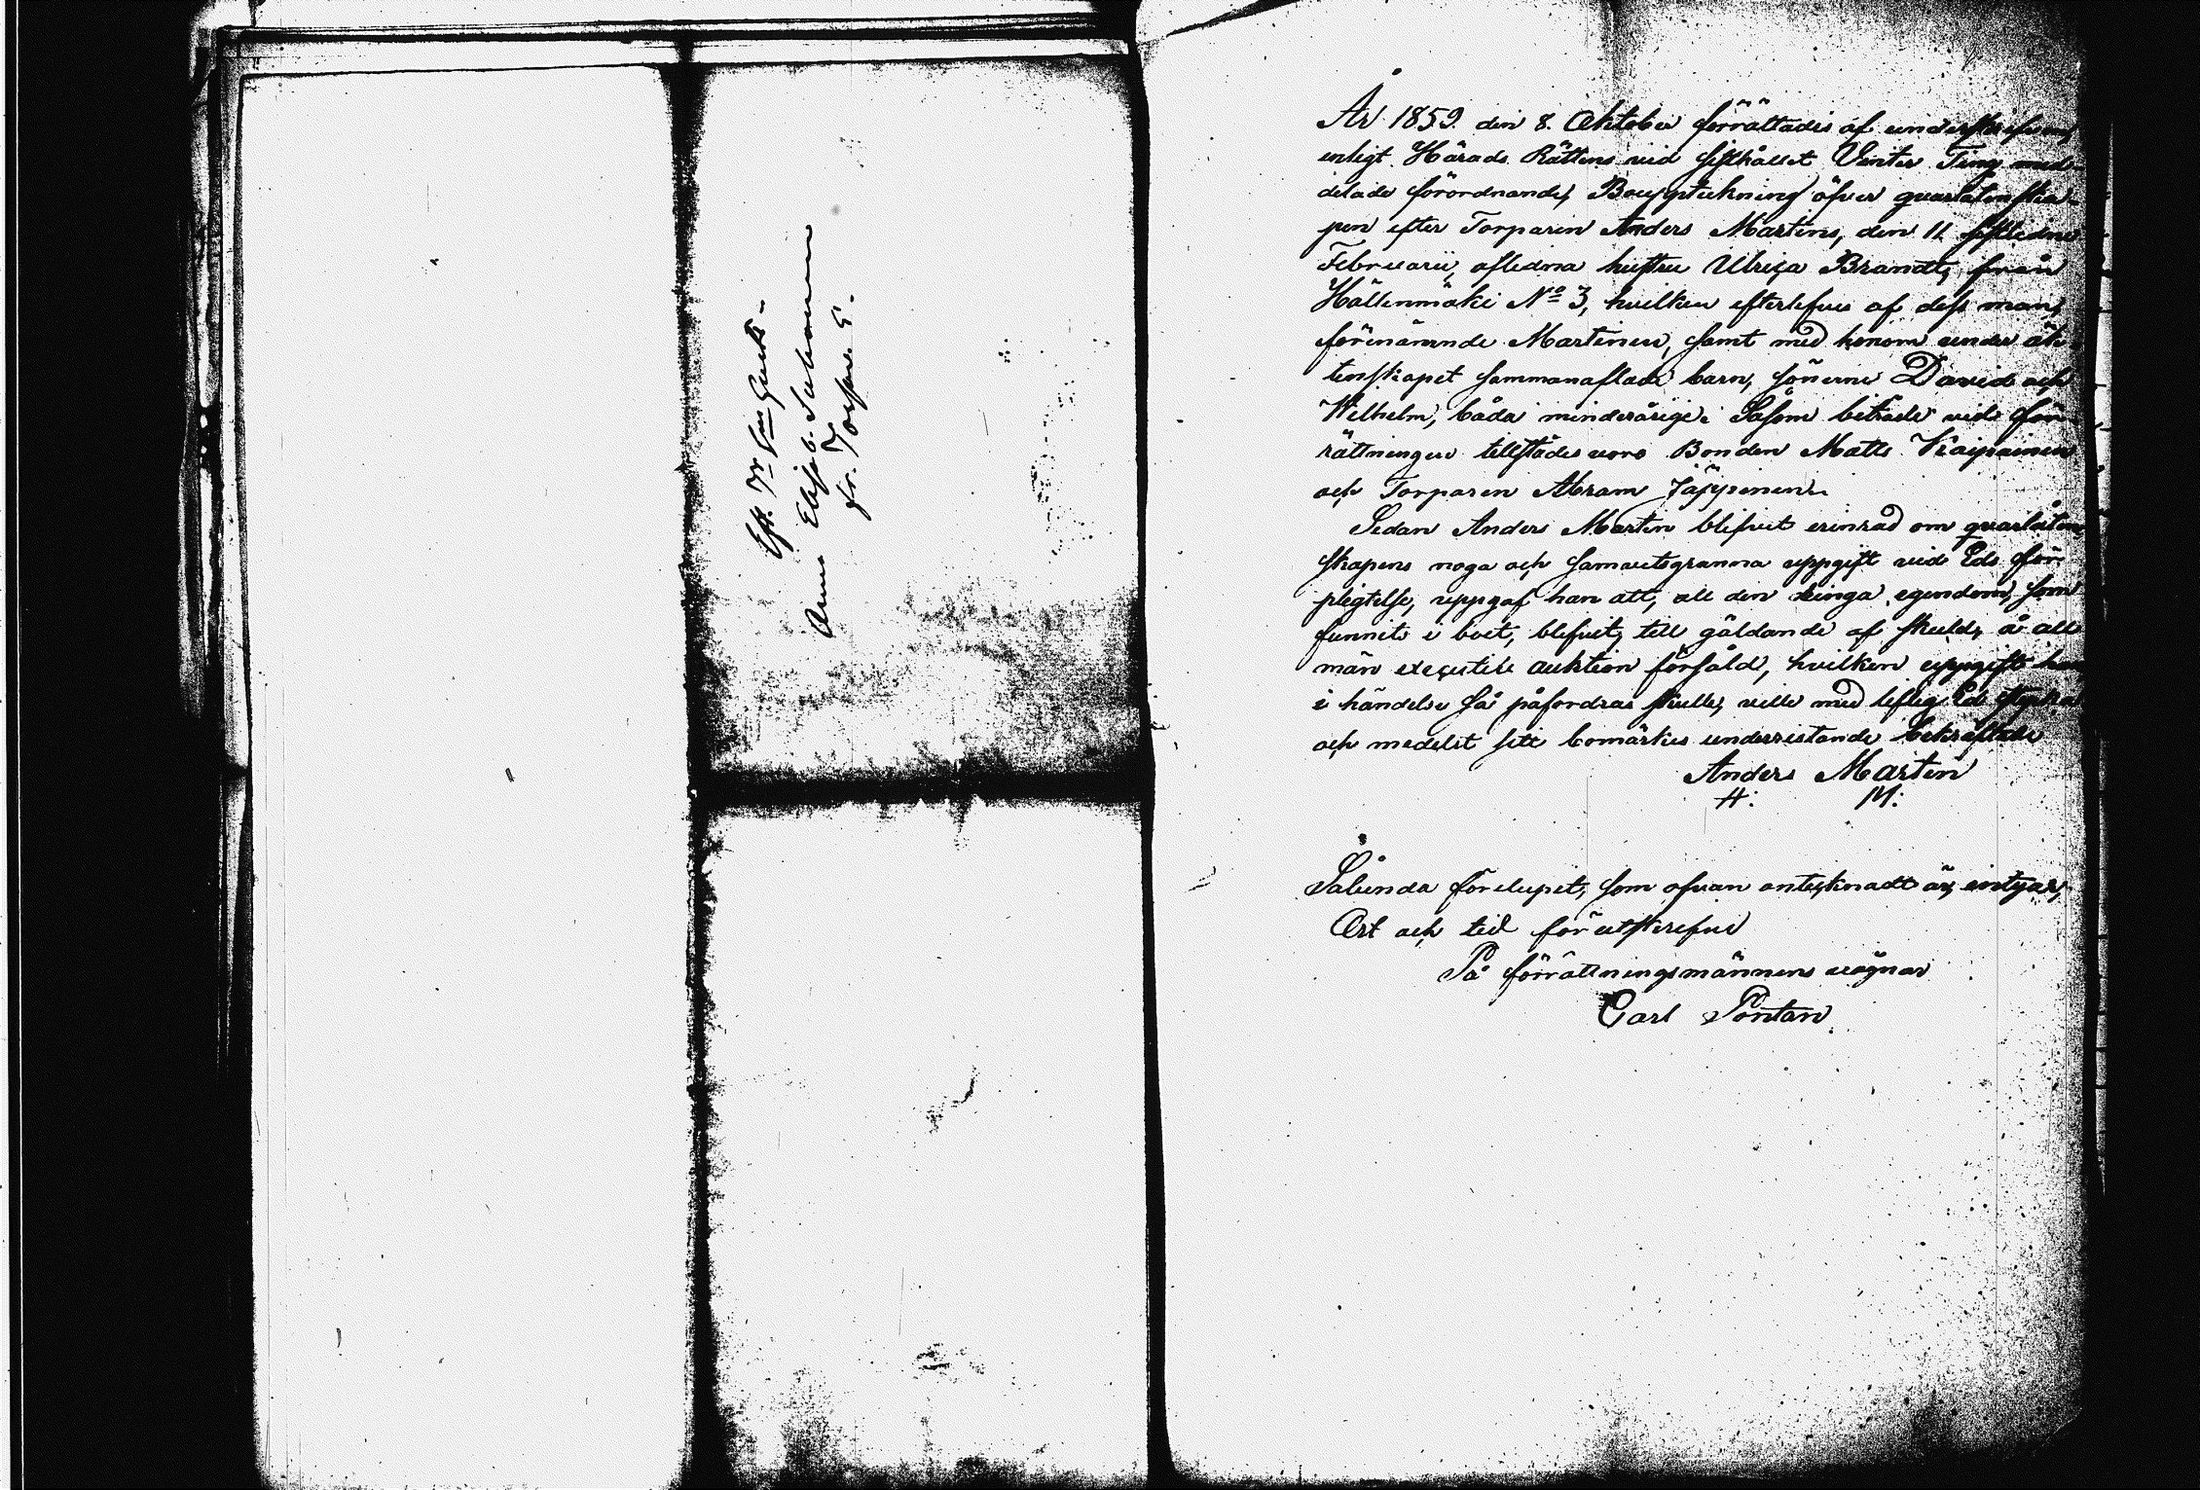 Anna Elisab. Suhonen
fr. Torpa. 5.
År 1859. den 8. Oktober förrättades af undertecknad
enligt Härads Rättens vid sisthållet Vinter Ting med-
delade förordnande, Bouppteckning öfver quarlåtenska-
pen efter Torparen Anders Martins, den 11 sistledne
Februarii, afledna hustru Ulrica Brandt, från
Hällinmäki No 3, hvilken efterlefves af dess man,
förenämnde Martinen, samt med honom under äk-
tenskapet sammanaflade barn, sönerne David och
Wilhelm, båda minderårige. Såsom beträde vid för-
rättningen tillstädes voro Bonden Matts Kaipainen
och Torparen Abram Jäppinen.
Sedan Anders Martin blifvit erinrad om quarlåten-
skapens noga och samvetsgranna uppgift vid Eds för-
plegtelse, uppgaf han att, all den ringa egendom, som
funnits i boet, blifvit, till gäldande af skuld, å all
män executiv auktion försåld, hvilken uppgift han
i händelse så påfordras skulle, ville med liflig Ed styrka
och medelst sitt bomärkes underristande bekräftade
Anders Martin
H: M:
Sålunda förelupet, som ofvan antecknadt är, intygar,
Ort och tid förutskrefne
På förrättningsmännens vägnar
Carl Pontan